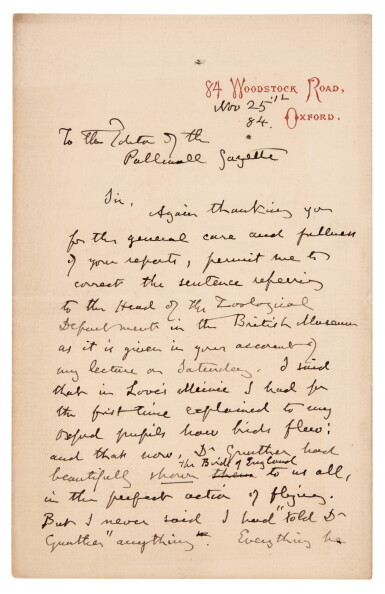 84 Woodstock Road,
Nov 25th
84. Oxford.
To the Editor of the
Pallmall Gazette
Sir,
Again thanking you
for the general care and fullness
of your reports, permit me to
correct the sentence referring
to the Head of the Zoological
Department in the British Museum
as it is given in your account of
my lecture on Saturday. I said
that in Love's Meinie I had for
the first time explained to my
Oxford pupils how birds flew;
and that now, Dr Gunther had
the Birds of England
beautifully shown them to us all,
in the perfect action of flying.
But I never said I had "told Dr
Gunther" anything. Everything he